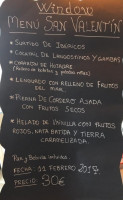 Window
MENÚ SAN VALENTÍN
SURTIDO DE IBÉRICOS
COCKTEL DE LANGOSTINOS Y GAMBAS
CORAZÓN DE HOJALDRE
LENGUADO CON RELLENO DE FRUTOS
DEL MAR.
PIERNA DE CORDERO ASADA
CON FRUTOS SECOS
HELADO DE VAINILLA CON FRUTOS
ROJOS, NATA BATIDA Y TIERRA
CARAMELIZADA.
Pan y Bebida incluida.
FECHA: 11 FEBRERO 2017
PRECIO: 30€